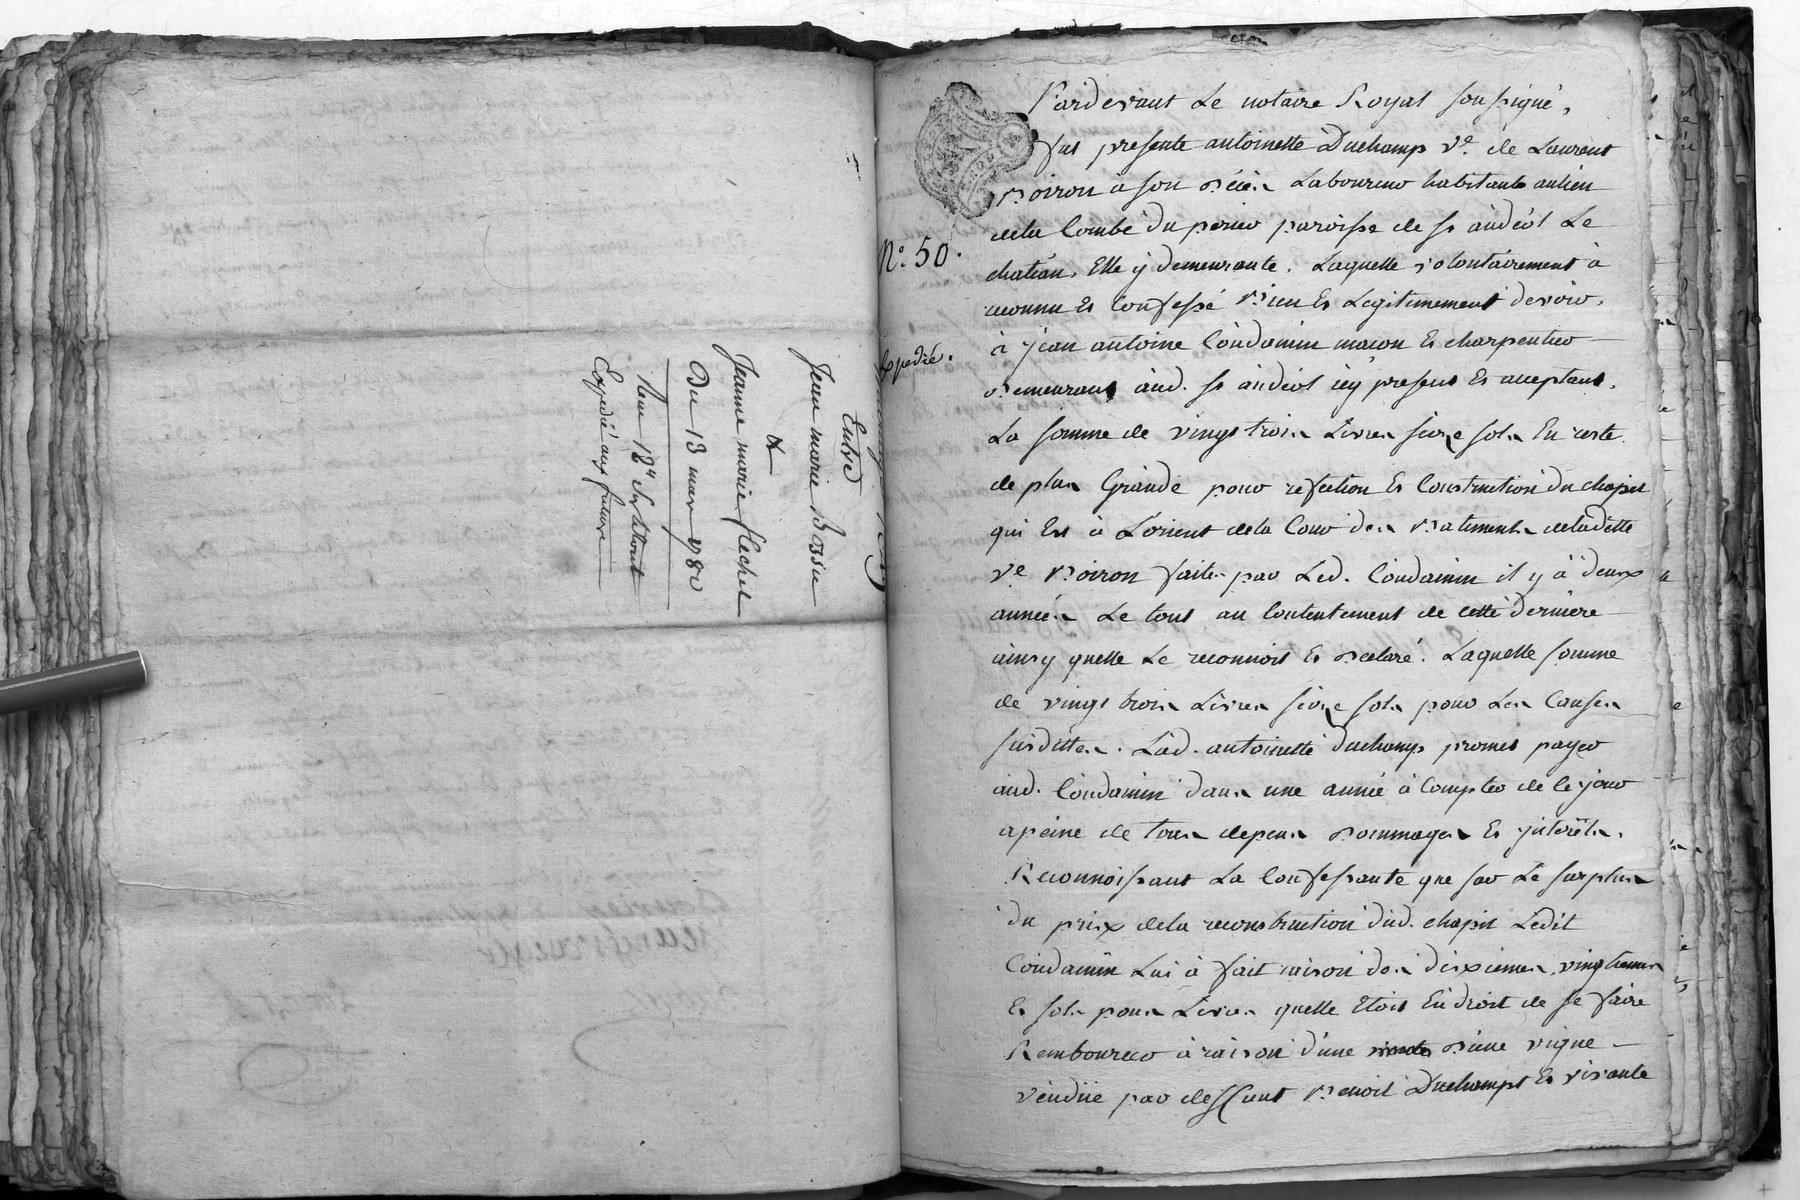 Entre
Jean marie Bossu
&
Jeanne marie flechet
Du 13 mars 1780
Expedié aux futurs
N.° 50.
Expedié.
Pardevant Le notaire Royal soussigné,
fut presente antoinette Duchamp v.e de Laurent
Voiron à son décès Laboureur habitante au lieu
de la Combe du perier paroisse de st andéol Le
chateau, Elle y demeurante, Laquelle volontairement à
reconnu et Confessé bien et Legitimement devoir,
à jean antoine Coudamin macon et charpentier
demeurant aud. st andéol icy present et acceptant,
La somme de vingt trois Livres seize sols En reste
de plus Grande pour refection et Construction du chapit
qui Est à L'orient de la Cour des batiments de ladette
v.e Voiron faites par Led. Coudamin il y à deux
années Le tout au Contentement de cette derniere
ainsy quelle Le reconnoit et declare. Laquelle somme
de vingt trois Livres seize sols pour Les Causes
susdittes. Lad. antoinette duchamp promet payer
aud. Coudamin dans une année à Compter de Ce jour
apeine de tous depens dommages et jnterêts.
Reconnoissant La Confessante que sur Le surplus
du prix de la reconstruction dud. chapit Ledit
Coudamin Lui à fait raison des dixiemes, vingtiemes
et sols pour Livres quelle Etoit En droit de se faire
Rembourcer à raison d'une d'une vigne
vendüe par deffunt Benoit Duchampt et vivante